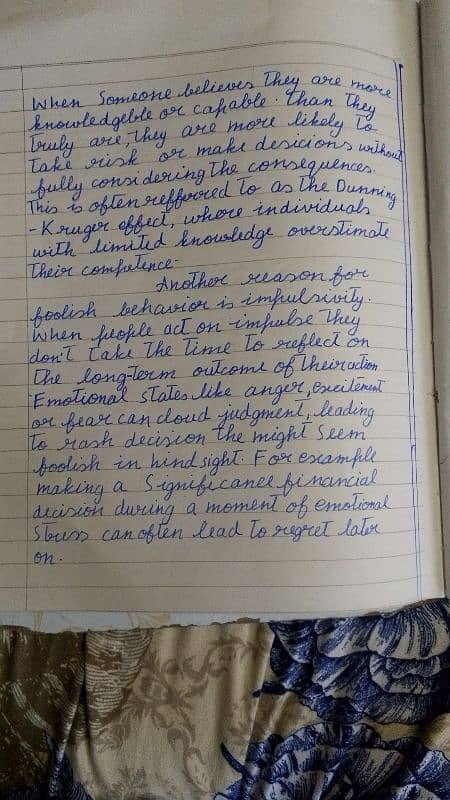 When Someone believes They are more
knowledgeble or capable. Than They
Truly are, They are more likely To
Take risk or make desicions without
fully considering The consequences.
This is often reffered To as The Dunning
-Kruger effect, where individuals
with limited knowledge overstimate
Their competence.
Another reason for
foolish behavior is impulsivity.
When people act on impulse They
don't Take The Time To reflect on
The long-Term outcome of Their action
Emotional States like anger, excitement
or fear can cloud judgment, leading
To rash decision The might Seem
foolish in hindsight. For example
making a Significance financial
decision during a moment of emotional
Stress can often lead To regret later
on.